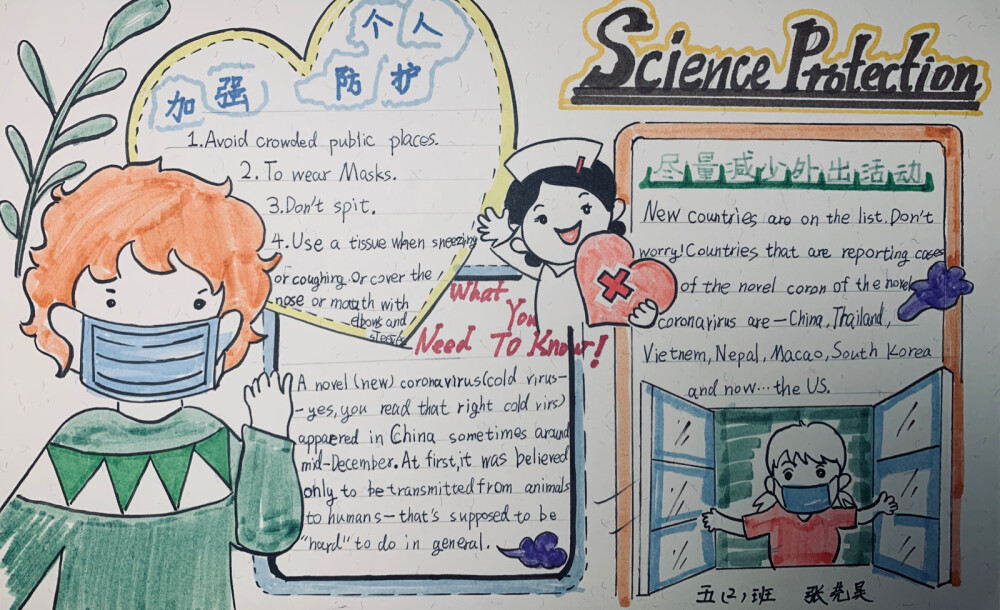 个人
加强 防护
1.Avoid crowded public places.
2.To wear Masks.
3.Don't spit.
4.Use a tissue when sneezing
or coughing. Or cover the
nose or mouth with
elbows and
sleeves
What
You
Need To Know!
A novel (new) coronavirus(cold virus-
-yes, you read that right cold virs)
appeared in China sometimes around
mid-December. At first, it was believed
only to be transmitted from animals
to humans—that's supposed to be
"hard" to do in general.
Science Protection
尽量减少外出活动
New countries are on the list. Don't
worry! Countries that are reporting cases
of the novel coron of the novel
coronavirus are—China, Thailand,
Vietnem, Nepal, Macao, South Korea
and now...the US.
五(2)班 张亮昊